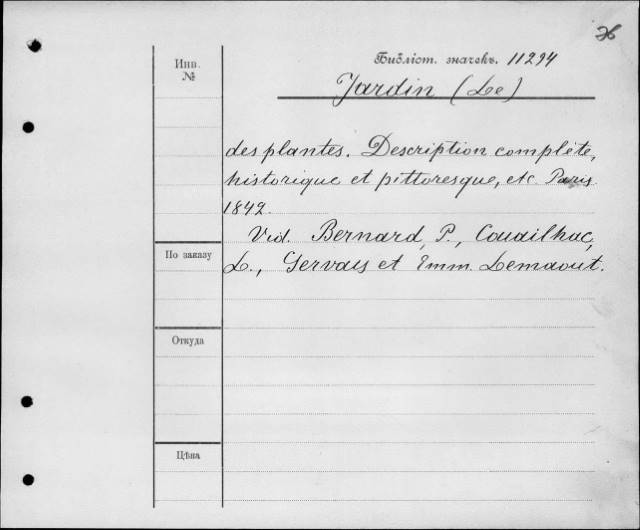 Ж
Библіот. значекъ. 11294
Инв.
№
Jardin (Le)
des plantes. Description complète,
historique et pittoresque, etc. Paris.
1842.
Vid. Bernard, P., Couailhac,
По заказу
L., Gervais et Emm. Lemaout.
Откуда
Цѣна